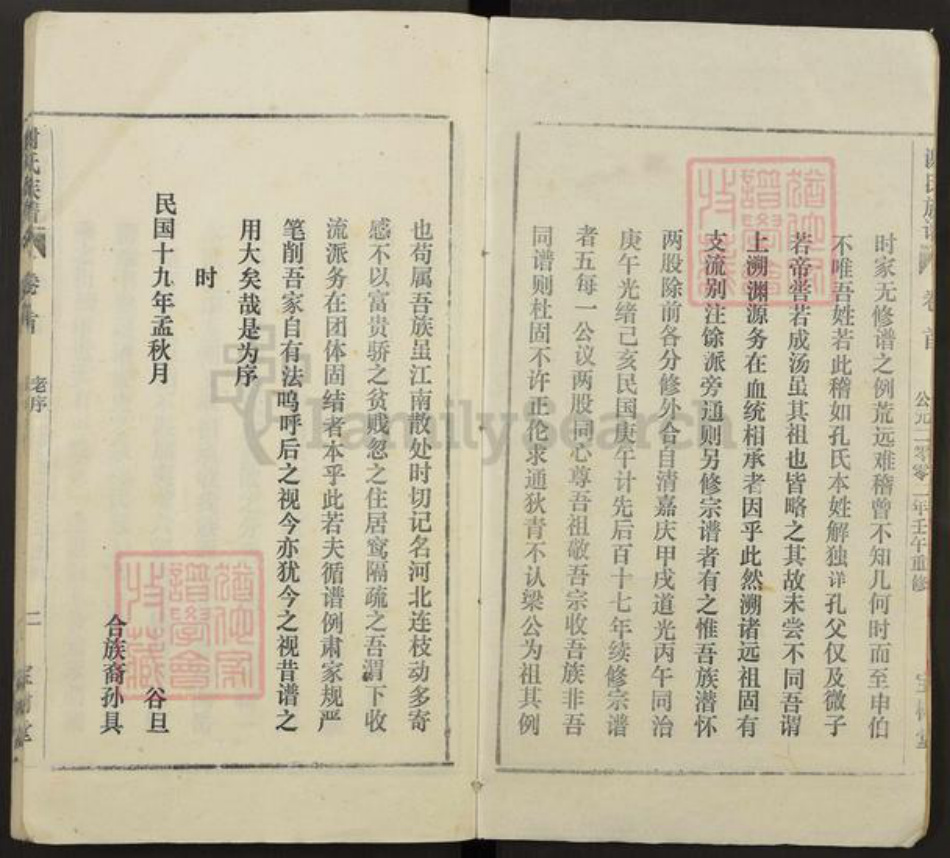 谢氏族谱 卷首 公元二零零二年壬午重修 宝树堂
时家无修谱之例荒远难稽曾不知几何时而至申伯
不唯吾姓若此稽如孔氏本姓解独详孔父仅及微子
若帝喾若成汤虽其祖也皆略之其故未尝不同吾谓
上溯渊源务在血统相承者因乎此然溯诸远祖固有
支流别注馀派旁通则另修宗谱者有之惟吾族潜怀
两股除前各分修外合自清嘉庆甲戌道光丙午同治
庚午光绪己亥民国庚午计先后百十七年续修宗谱
者五每一公议两股同心尊吾祖敬吾宗收吾族非吾
同谱则杜固不许正伦求通狄青不认梁公为祖其例
也苟属吾族虽江南散处时切记名河北连枝动多寄
感不以富贵骄之贫贱忽之住居窎隔疏之吾谓下收
流派务在团体固结者本乎此若夫循谱例肃家规严
笔削吾家自有法呜呼后之视今亦犹今之视昔谱之
用大矣哉是为序
时
民国十九年孟秋月 谷旦
合族裔孙具
谢氏族谱 卷首 老序 二 宝树堂
FamilySearch